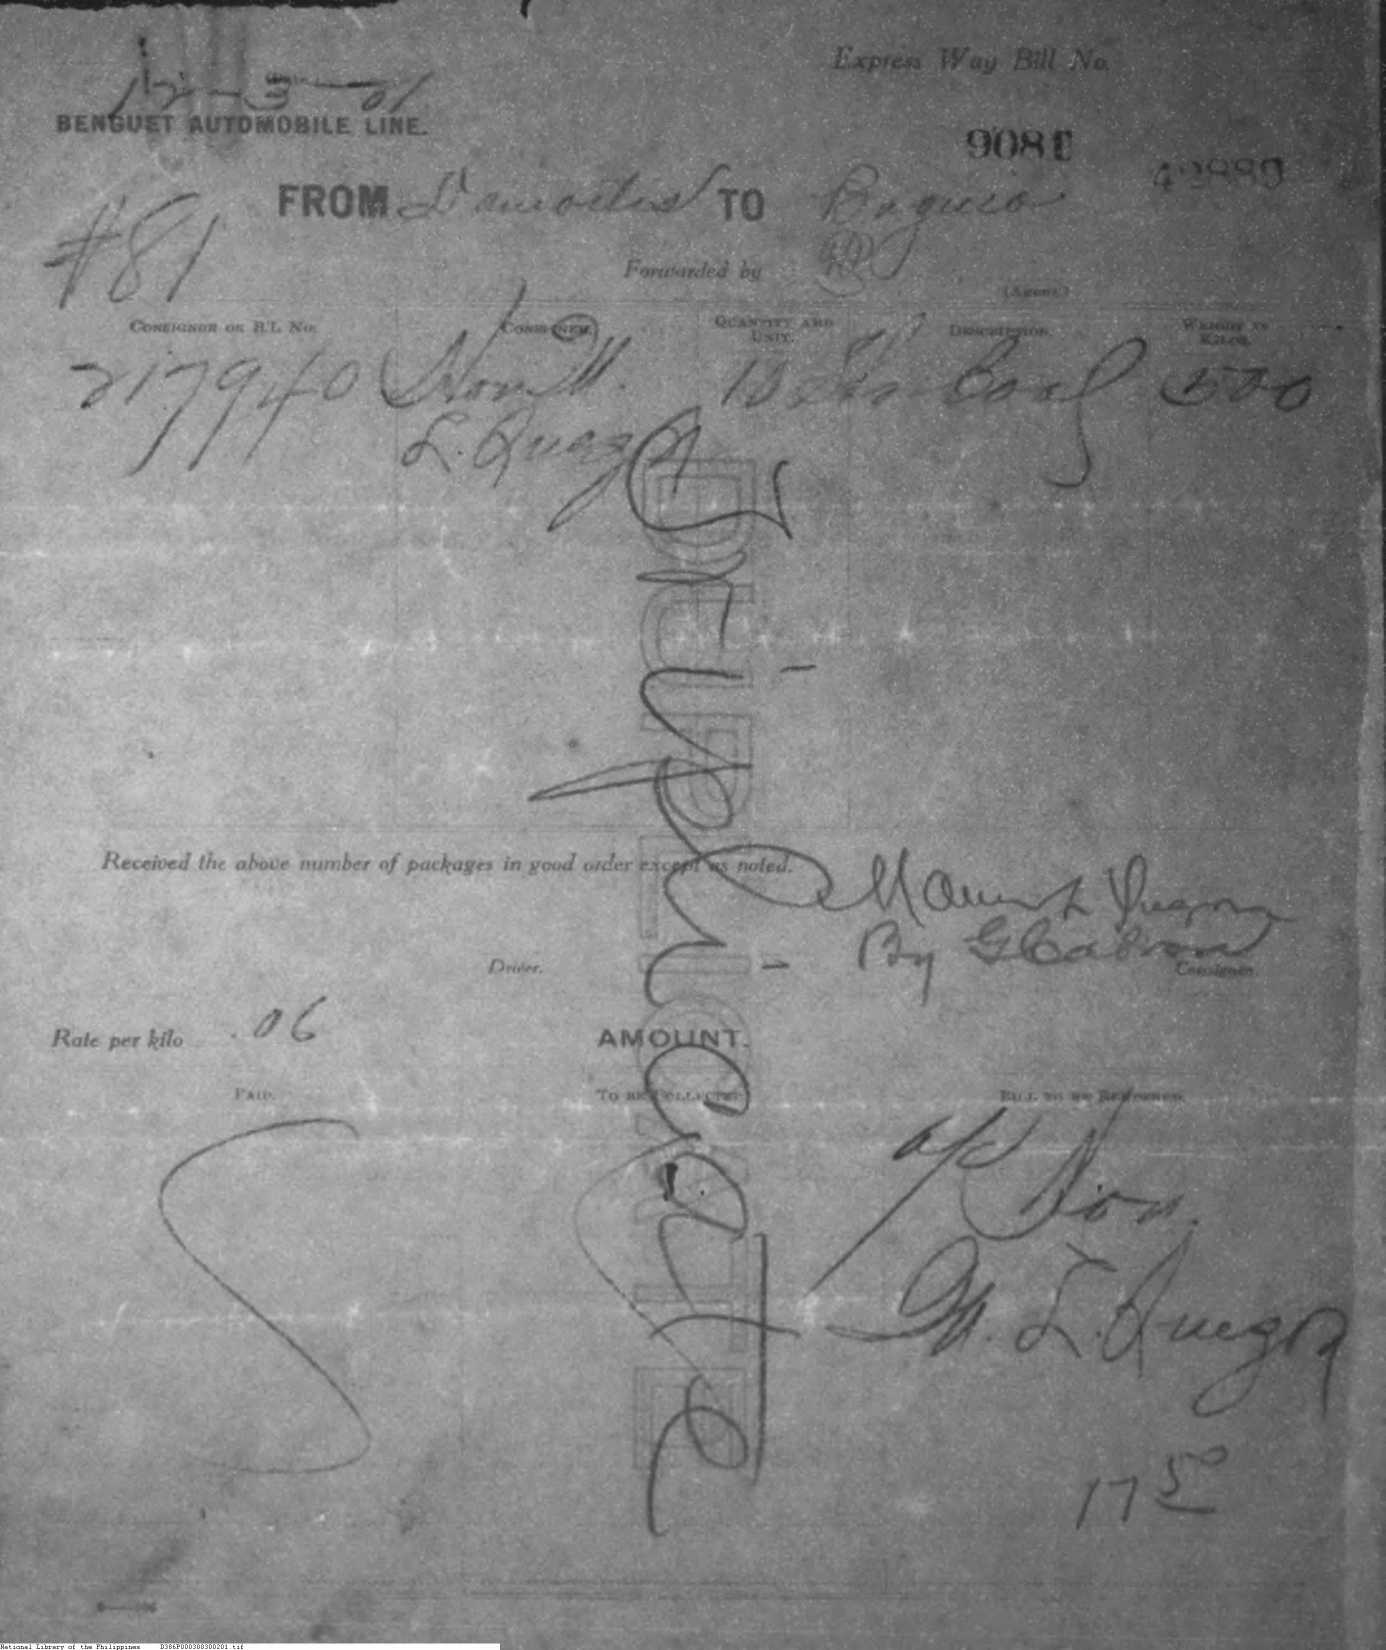 Express Way Bill No.
12-3-21
BENGUET AUTOMOBILE LINE.
9081
42880
FROM Damortis TO Baguio
#81
Forwarded by
(Agent.)
CONSIGNOR OR B'L No. CONSIGNEE. QUANTITY AND UNIT. DESCRIPTION. WEIGHT IN KILOS.
217940 Hon M. Coal 500
L. Quezon
DUPLICATE
Duplicate
Received the above number of packages in good order except as noted.
Manuel L Quezon
By
Driver. Consignee.
Rate per kilo .06 AMOUNT.
PAID. TO BE COLLECTED. BILL TO BE RENDERED.
a/c Hon.
M. L. Quezon
17 50
National Library of the Philippines D386P000300300201.tif